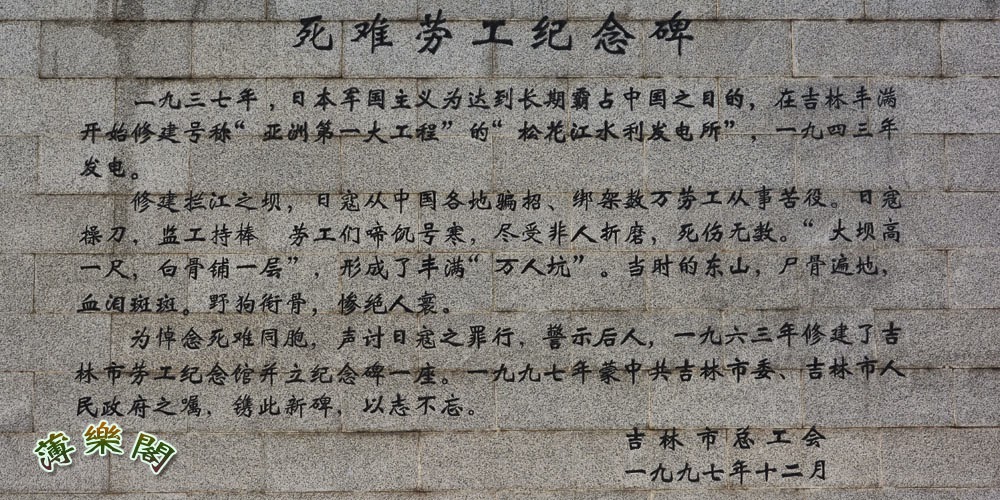 死难劳工纪念碑
一九三七年，日本军国主义为达到长期霸占中国之目的，在吉林丰满
开始修建号称“亚洲第一大工程”的“松花江水利发电所”，一九四三年
发电。
修建拦江之坝，日寇从中国各地骗招、绑架数万劳工从事苦役。日寇
操刀，监工持棒 劳工们啼饥号寒，尽受非人折磨，死伤无数。“大坝高
一尺，白骨铺一层”，形成了丰满“万人坑”。当时的东山，尸骨遍地，
血泪斑斑。野狗衔骨，惨绝人寰。
为悼念死难同胞，声讨日寇之罪行，警示后人，一九六三年修建了吉
林市劳工纪念馆并立纪念碑一座。一九九七年蒙中共吉林市委、吉林市人
民政府之嘱，镌此新碑，以志不忘。
吉林市总工会
一九九七年十二月
薄樂閣